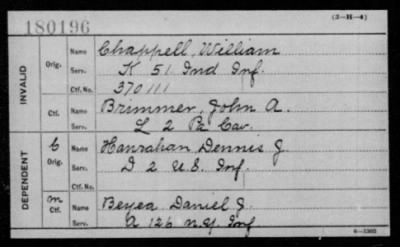 180196
(3—H—4)
INVALID
Orig.
Name Chappell, William
Serv. K 51 Ind Inf.
Ctf. No. 370111
Ctf.
Name Brimmer, John A.
Serv. L 2 Pa Cav.
DEPENDENT
C
Orig.
Name Hanrahan Dennis J.
Serv. D 2 U.S. Inf.
Ctf. No.
m
Ctf.
Name Beyea Daniel J.
Serv. A 126 N.Y. Inf